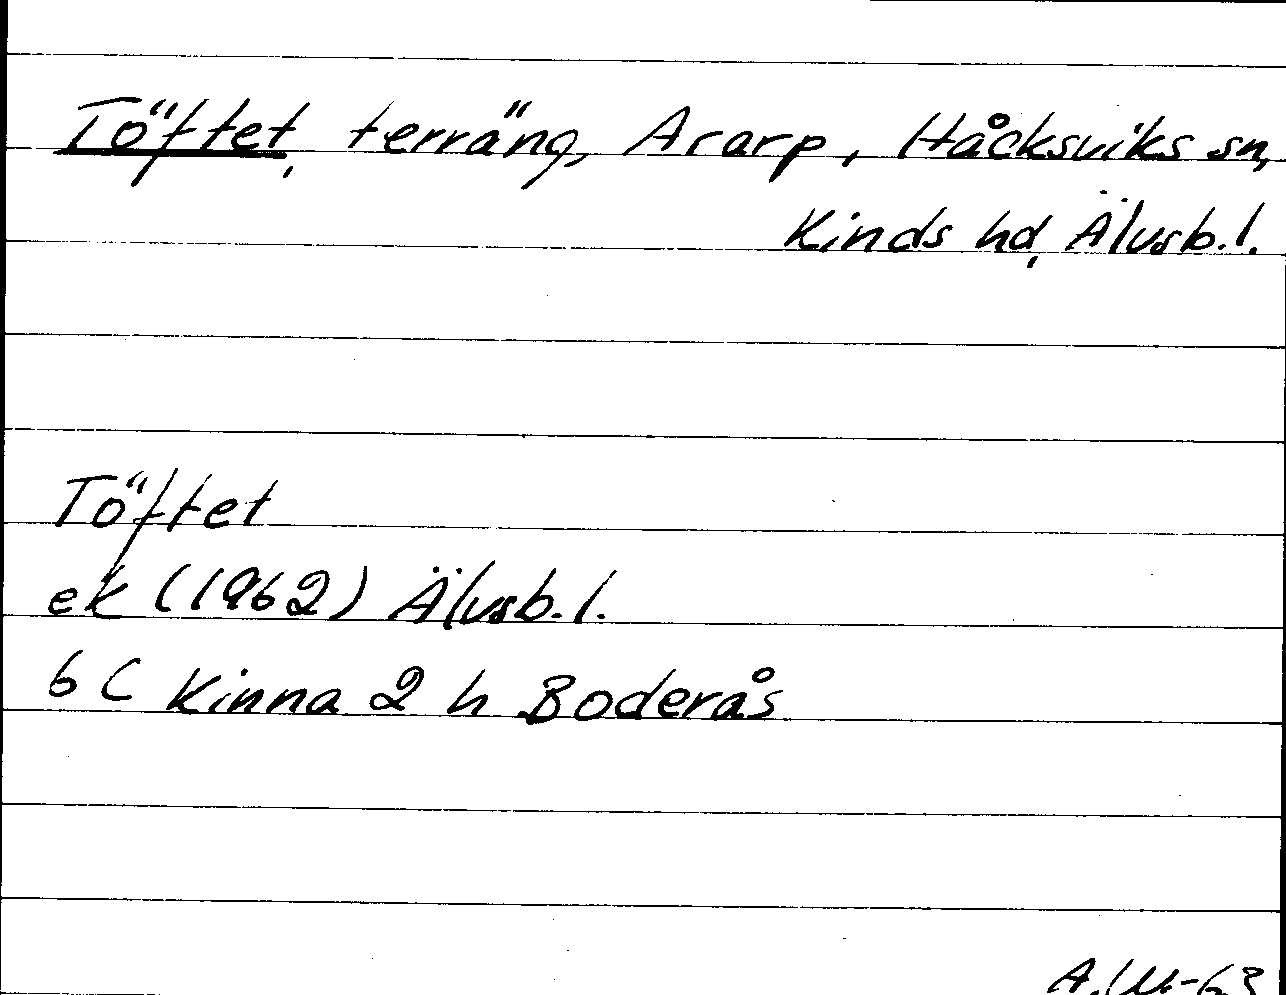 Töftet, terräng, Ararp, Håcksviks sn,
Kinds hd, Älvsb.l.
Töftet
ek (1962) Älvsb.l.
6 C Kinna 2 h Boderås